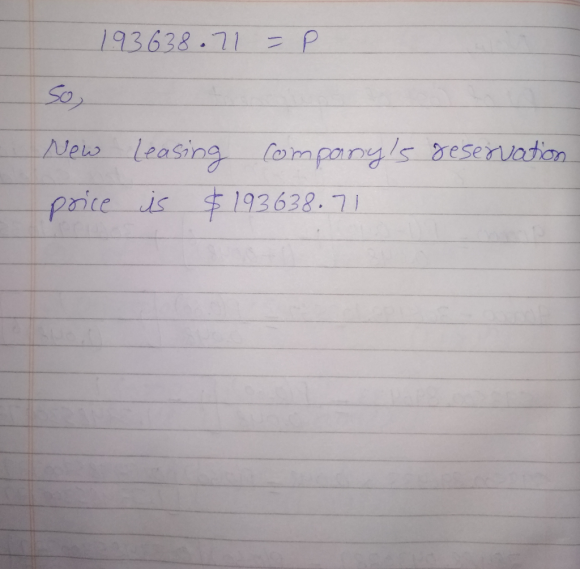 193638.71 = P
So,
New leasing Company's reservation
price is $193638.71